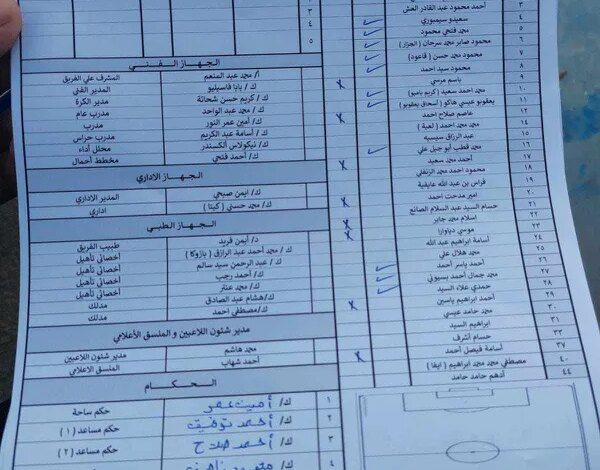 ٣ أحمد محمود عبد القادر العش
٤ سعيدو سيمبوري
٥ محمد فتحي محمود
٦ محمود صابر محمد سرحان ( الجزار )
٧ محمود محمد حسن ( قاعود )
٨ محمود سيد احمد
٩ باسم مرسي
١٠ محمد احمد سعيد ( كريم بامبو )
١١ يعقوبو عيسي هاكو ( اسحاق يعقوبو )
١٢ عاصم صلاح احمد
١٤ محمد محمد احمد ( لعبة )
١٥ عبد الرزاق سيسيه
١٦ محمد قطب أبو جبل علي
١٧ أحمد محمد سعيد
١٨ محمود احمد محمد الزنفلي
١٩ فراس بن عبد الله عايفية
٢٠ امير مدحت احمد
٢١ حسام السيد عبد السلام الصالح
٢٢ اسلام محمد جابر
٢٣ موسي دياوارا
٢٤ أسامة ابراهيم عبد الله
٢٥ محمد هلال علي
٢٦ أحمد ياسر أحمد
٢٧ محمد جمال أحمد بسيوني
٢٨ حمدي علاء السيد
٢٩ أحمد ابراهيم ياسين
٣٠ محمد حامد عيسي
٣١ ابراهيم السيد
٣٣ حسام أشرف
٣٧ أسامة فيصل أحمد
٤٠ مصطفي محمد محمد ابراهيم ( ايفا )
٤٤ أدهم حامد حامد
٣
٤
٥
الجهاز الفني
أ/ محمد عبد المنعم المشرف علي الفريق
ك/ بابا فاسيليو المدير الفني
ك/ كريم حسن شحاتة مدير الكرة
ك/ محمد عبد الواحد مدرب عام
ك/ أمين عمر النور مدرب
ك/ أسامة عبد الكريم مدرب حراس
ك/ نيكولاس أليكسندر محلل أداء
ك/ أحمد فتحي مخطط أحمال
الجهاز الاداري
ك/ ايمن صبحي المدير الاداري
ك/ محمد حسني ( كيتا ) اداري
الجهاز الطبي
د/ أيمن فريد طبيب الفريق
ك/ أحمد محمد عبد الرازق ( بازوكا ) أخصائي تأهيل
ك/ عبد الرحمن سيد سالم أخصائي تأهيل
ك/ أحمد رجب أخصائي تأهيل
ك/ محمد عنتر أخصائي تأهيل
ك/ هشام عبد الصادق مدلك
ك/ مصطفي احمد مدلك
مدير شئون اللاعبين و المنسق الأعلامي
محمد هاشم مدير شئون اللاعبين
أحمد شهاب المنسق الاعلامي
الحكام
١ ك/ أمين عمر حكم ساحة
٢ ك/ أحمد توفيق حكم مساعد (١)
٣ ك/ أحمد صلاح حكم مساعد (٢)
٤ ك/